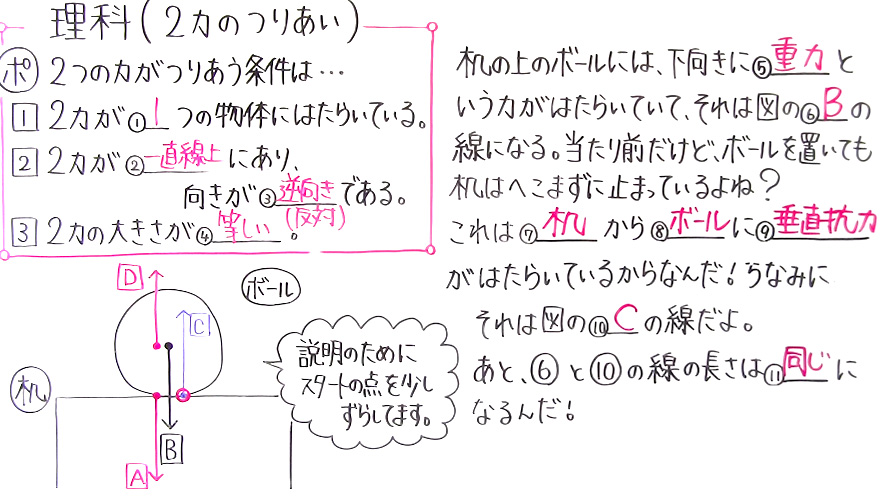 理科(2力のつりあい)
ポ 2つの力がつりあう条件は…
1 2力が①1つの物体にはたらいている。
2 2力が②一直線上にあり、
向きが③逆向き(反対)である。
3 2力の大きさが④等しい。
机の上のボールには、下向きに⑤重力と
いう力がはたらいていて、それは図の⑥Bの
線になる。当たり前だけど、ボールを置いても
机はへこまずに止まっているよね?
これは⑦机から⑧ボールに⑨垂直抗力
がはたらいているからなんだ!うなみに
それは図の⑩Cの線だよ。
あと、⑥と⑩の線の長さは⑪同じに
なるんだ!
D
ボール
C
机
B
A
説明のために
スタートの点を少し
ずらしてます。